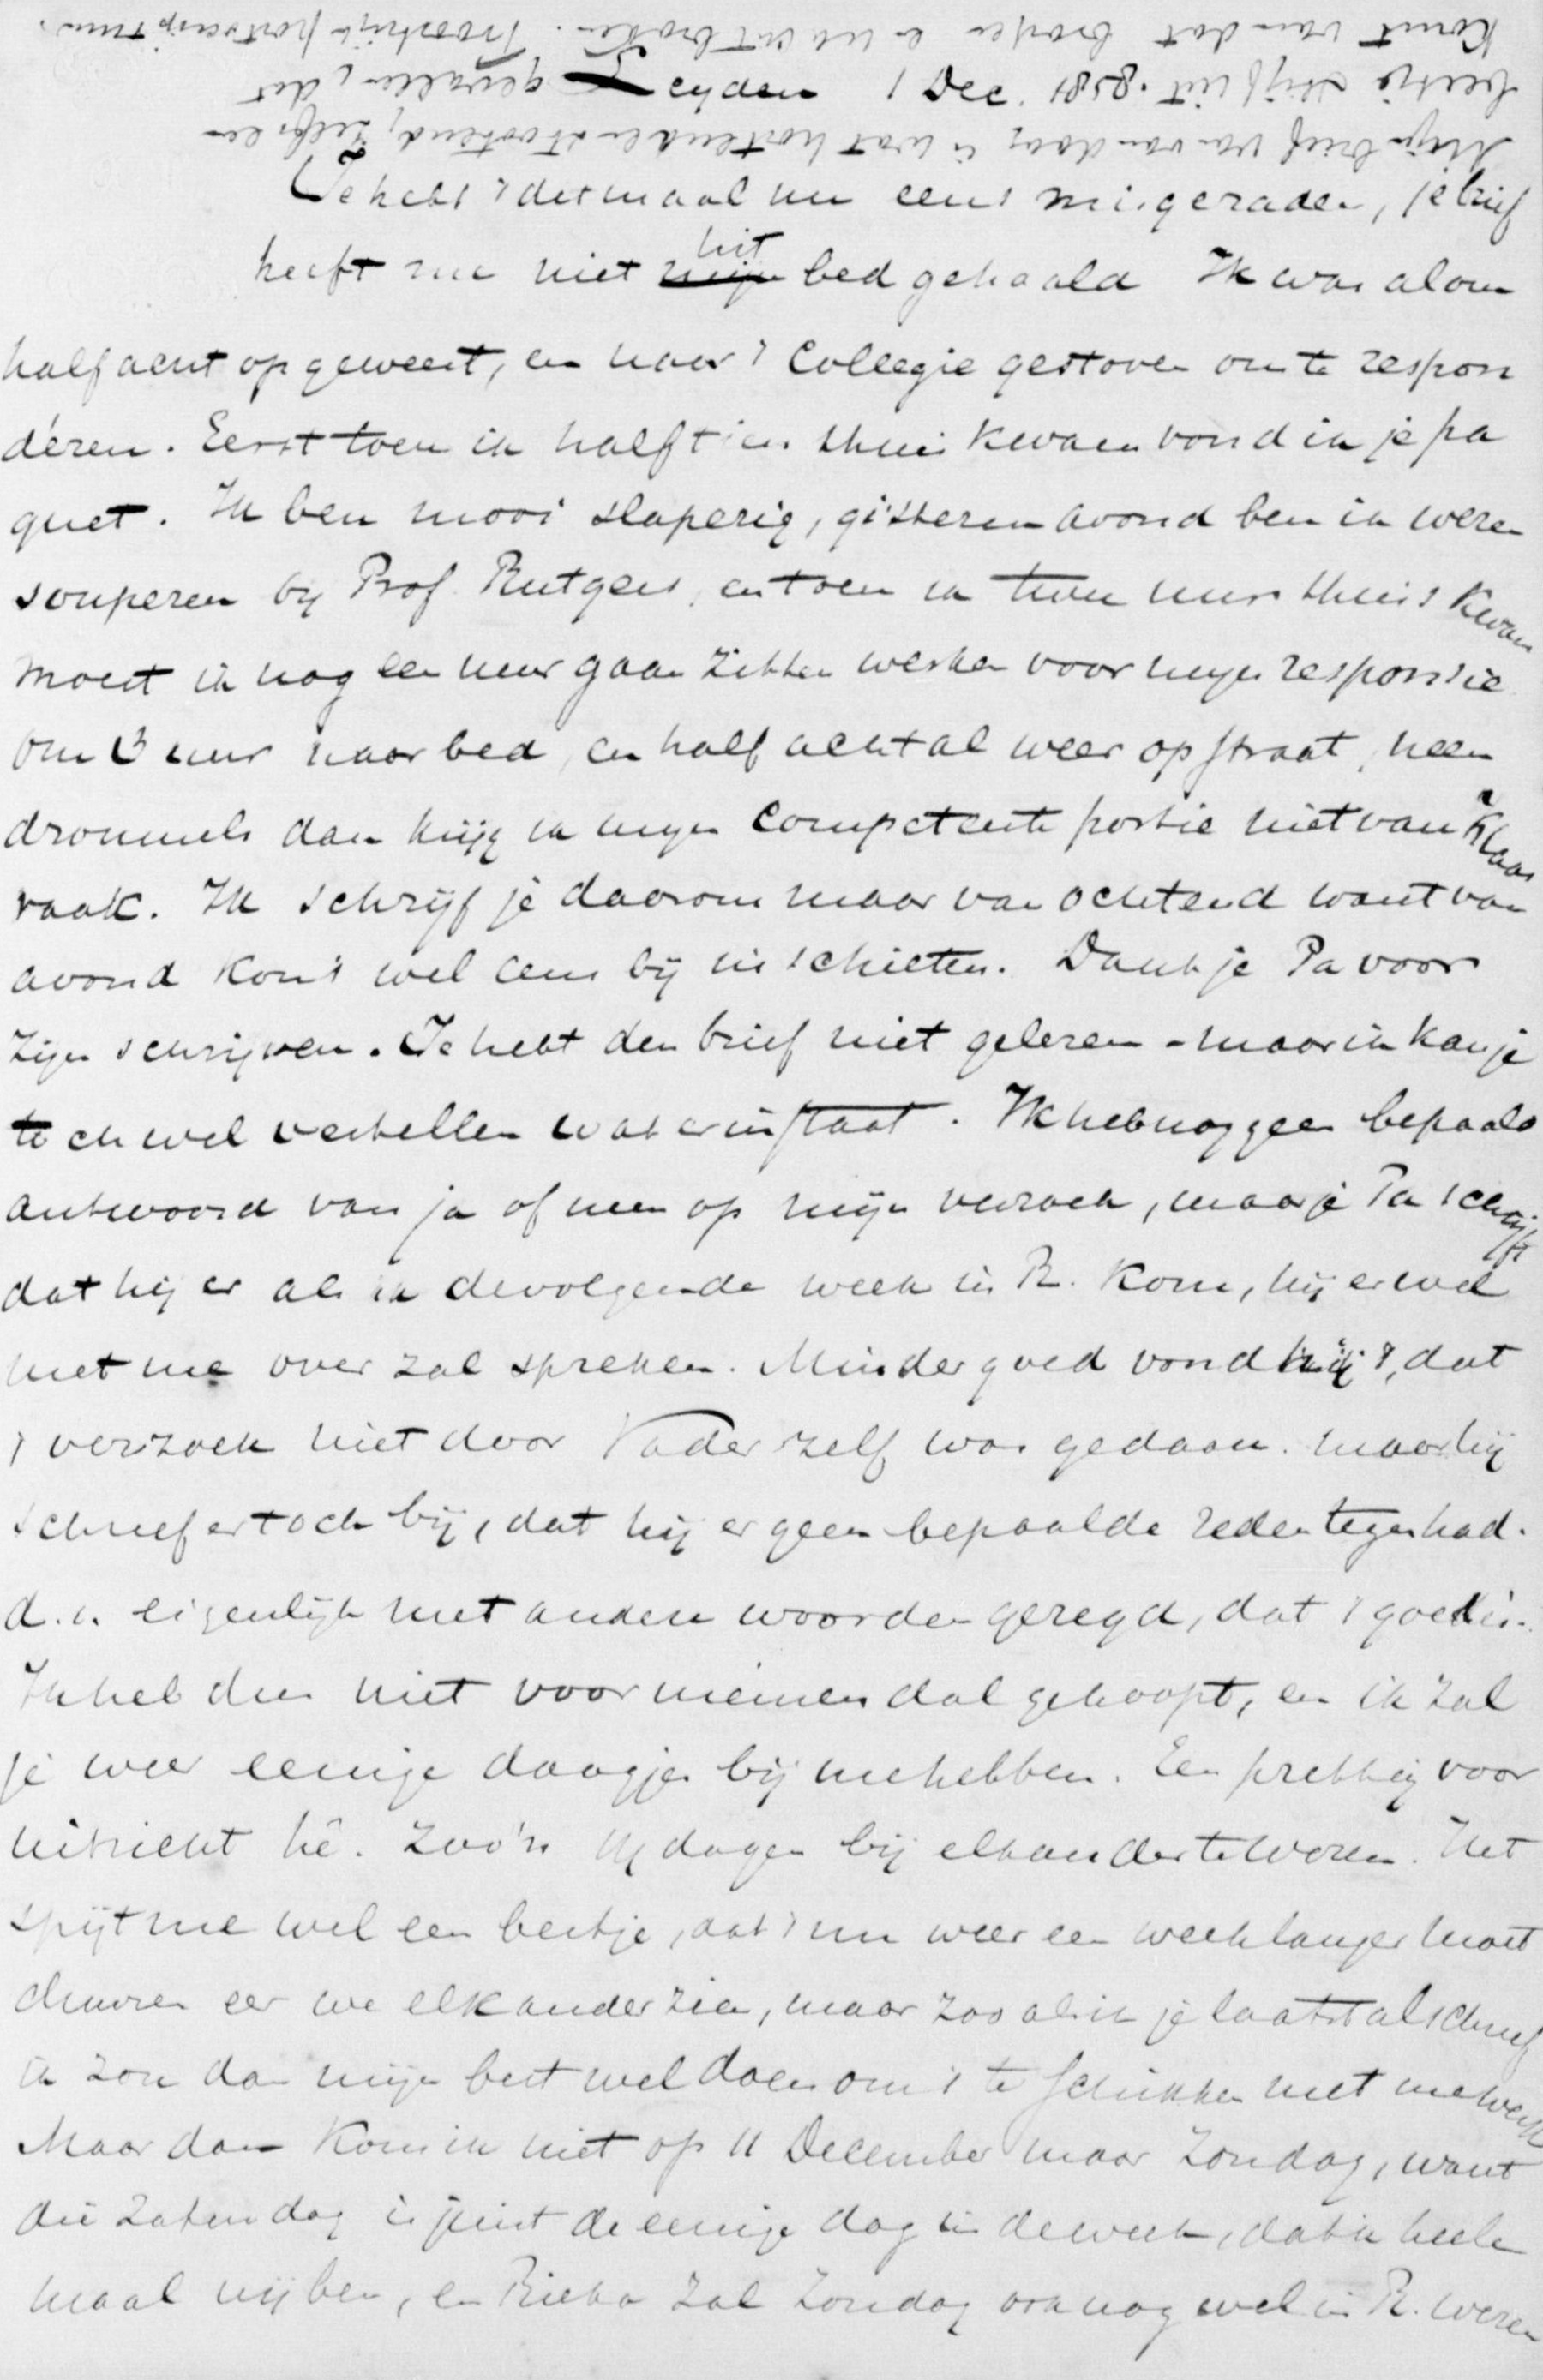 Leyden 1 Dec. 1858.
Je hebt 't ditmaal nu eens misgeraden, je brief
heeft me niet uit bed gehaald Ik was al om
half acht op geweest, en naar 't Collegie gestoven om te respon
deren. Eerst toen ik half tien thuis kwam vond ik je pa
quet. Ik ben mooi slaperig, gisteren avond ben ik wezen
souperen bij Prof. Rutgers, en toen ik twee uur thuis kwam
moest ik nog een uur gaan zitten werken voor mijn responsie
om 3 uur naar bed, en half acht al weer op straat, neen
drommels dan krijg ik mijn competente portie niet van Klaas
vaak. Ik schrijf je daarom maar van ochtend want van
avond kon 't wel eens bij inschieten. Dank je Pa voor
zijn schrijven. Je hebt den brief niet gelezen - maar ik kan je
toch wel vertellen wat er in staat. Ik heb nog geen bepaald
antwoord van ja of neen op mijn verzoek, maar je Pa schrijft
dat hij er als ik de volgende week in R. kom, hij er wel
met me over zal spreken. Minder goed vond hij 't, dat
't verzoek niet door Vader zelf was gedaan. maar hij
schreef er toch bij, dat hij er geen bepaalde reden tegen had.
d.i. eigenlijk met andere woorden gezegd, dat 't goed is.
Ik heb dus niet voor niemendal gehoopt, en ik zal
je weer eenige daagjes bij me hebben. Een prettig voor
uitzicht hê. zoo'n dagen bij elkander te wezen. Het
spijt me wel een beetje, dat 't nu weer een week langer moet
duuren eer we elkander zien, maar zoo als ik je laatst al schreef
ik zou dan mijn best wel doen om 't te schikken met me werk
Maar dan kom ik niet op 11 December maar Zondag, want
die Zaterdag is juist de eenige dag in de week, dat ik heele
maal vrij ben, en Rieka zal Zondag ook nog wel in R. wezen
Mijn brief van van daag is wat hortend en stootend, zelfs een
beetje stijf uit gevallen, dat
komt van dat draven en het ontbroken. Troostrijk postscriptum.